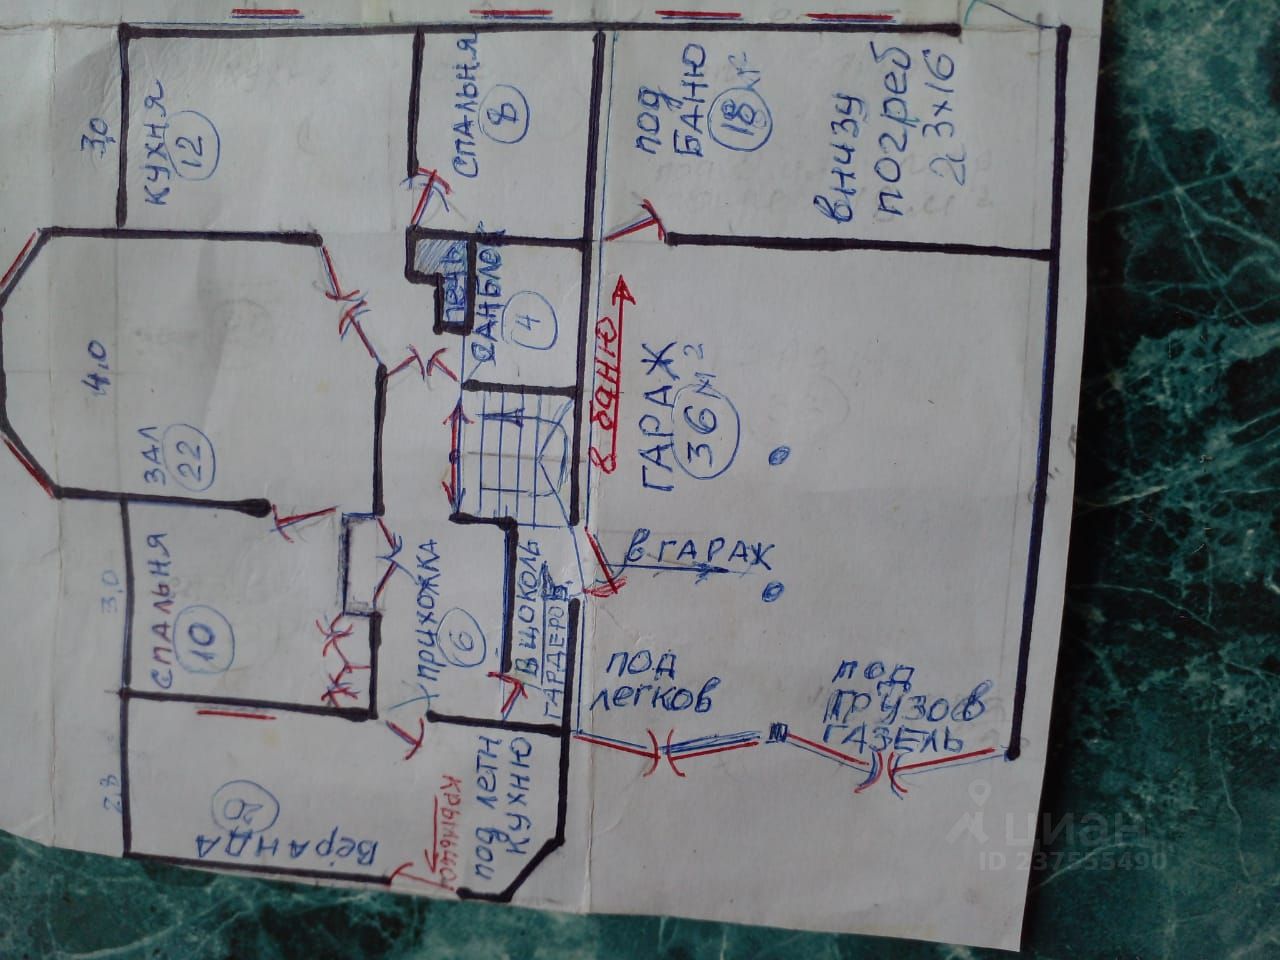 3,0
КУХНЯ
12
СПАЛЬНЯ
8
ПОД
БАНЮ
18
ВНИЗУ
ПОГРЕБ
2х3х16
4,0
ЗАЛ
22
ПЕЧЬ
САНБЛОК
4
В БАНЮ
ГАРАЖ
36 м2
3,0
СПАЛЬНЯ
10
ПРИХОЖКА
6
В ЦОКОЛЬ
ГАРДЕРОБ.
В ГАРАЖ
ПОД
ЛЕГКОВ
ПОД
ГРУЗОВ
ГАЗЕЛЬ
2,8
ВЕРАНДА
9
КРЫЛЬЦО
ПОД ЛЕТН
КУХНЮ
циан
ID 237555490